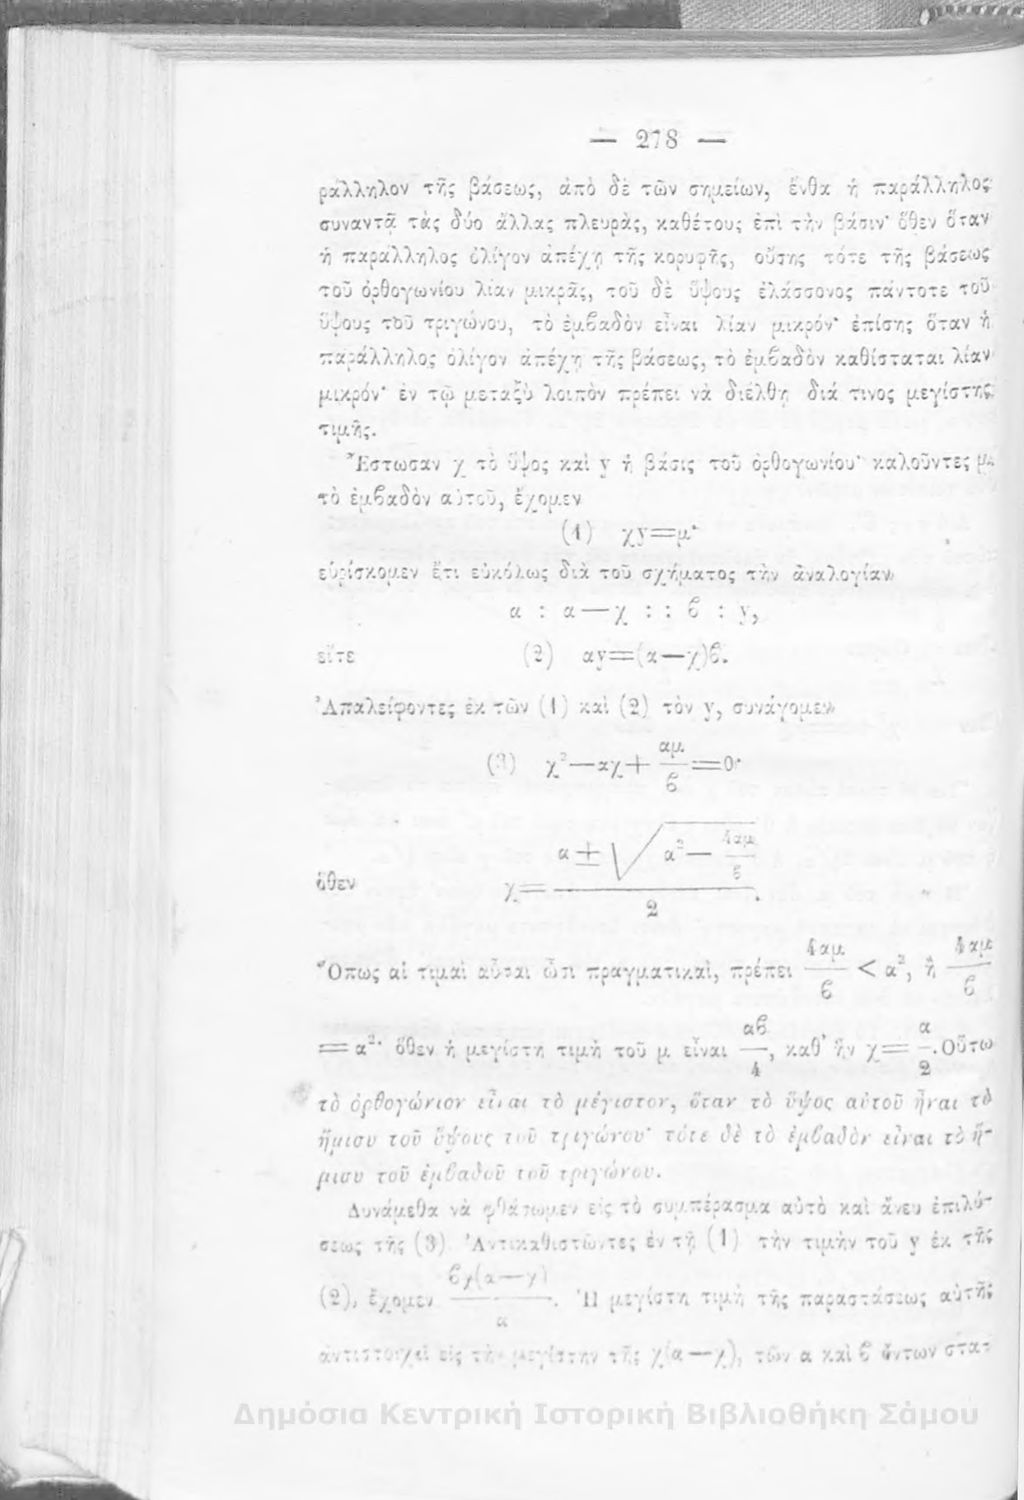 — 278 —
ράλληλον τῆς βάσεως, ἀπὸ δὲ τῶν σημείων, ἔνθα ἡ παράλληλος
συναντᾷ τὰς δύο ἄλλας πλευρὰς, καθέτους ἐπὶ τὴν βάσιν· ὅθεν ὅταν
ἡ παράλληλος ὀλίγον ἀπέχῃ τῆς κορυφῆς, οὔσης τότε τῆς βάσεως
τοῦ ὀρθογωνίου λίαν μικρᾶς, τοῦ δὲ ὕψους ἐλάσσονος πάντοτε τοῦ
ὕψους τοῦ τριγώνου, τὸ ἐμβαδὸν εἶναι λίαν μικρόν· ἐπίσης ὅταν ἡ
παράλληλος ὀλίγον ἀπέχῃ τῆς βάσεως, τὸ ἐμβαδὸν καθίσταται λίαν
μικρόν· ἐν τῷ μεταξὺ λοιπὸν πρέπει νὰ διέλθῃ διά τινος μεγίστης
τιμῆς.
Ἔστωσαν χ τὸ ὕψος καὶ y ἡ βάσις τοῦ ὀρθογωνίου· καλοῦντες μ
τὸ ἐμβαδὸν αὐτοῦ, ἔχομεν
(1) χy=μ·
εὑρίσκομεν ἔτι εὐκόλως διὰ τοῦ σχήματος τὴν ἀναλογίαν
α : α—χ : : β : y,
εἴτε (2) αy=(α—χ)β.
Ἀπαλείφοντες ἐκ τῶν (1) καὶ (2) τὸν y, συνάγομεν
(3) χ²—αχ+ αμ/β =0·
ὅθεν χ= (α ± √(α²— 4αμ/β))/2.
Ὅπως αἱ τιμαὶ αὗται ὦσι πραγματικαὶ, πρέπει 4αμ/β < α², ἢ 4αμ/β
= α²· ὅθεν ἡ μεγίστη τιμὴ τοῦ μ εἶναι αβ/4, καθ' ἣν χ= α/2. Οὕτω
τὸ ὀρθογώνιον εἶναι τὸ μέγιστον, ὅταν τὸ ὕψος αὐτοῦ ἦναι τὸ
ἥμισυ τοῦ ὕψους τοῦ τριγώνου· τότε δὲ τὸ ἐμβαδὸν εἶναι τὸ ἥ-
μισυ τοῦ ἐμβαδοῦ τοῦ τριγώνου.
Δυνάμεθα νὰ φθάσωμεν εἰς τὸ συμπέρασμα αὐτὸ καὶ ἄνευ ἐπιλύ-
σεως τῆς (3). Ἀντικαθιστῶντες ἐν τῇ (1) τὴν τιμὴν τοῦ y ἐκ τῆς
(2), ἔχομεν βχ(α—χ)/α. Ἡ μεγίστη τιμὴ τῆς παραστάσεως αὐτῆς
ἀντιστοιχεῖ εἰς τὴν μεγίστην τῆς χ(α—χ), τῶν α καὶ β ὄντων στα-
Δημόσια Κεντρική Ιστορική Βιβλιοθήκη Σάμου